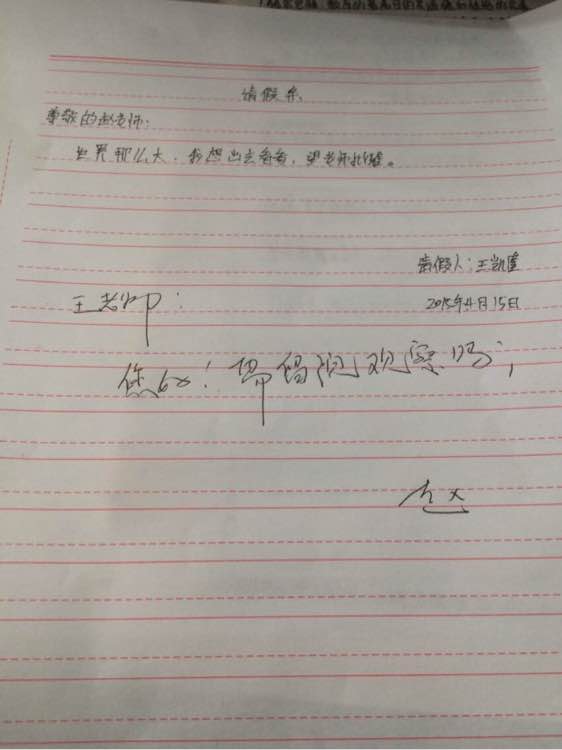 请假条
尊敬的赵老师：
世界那么大，我想出去看看，望老师批准。
请假人：王凯隆
2015年4月15日
王老师：
您好！带留观察吗，
赵